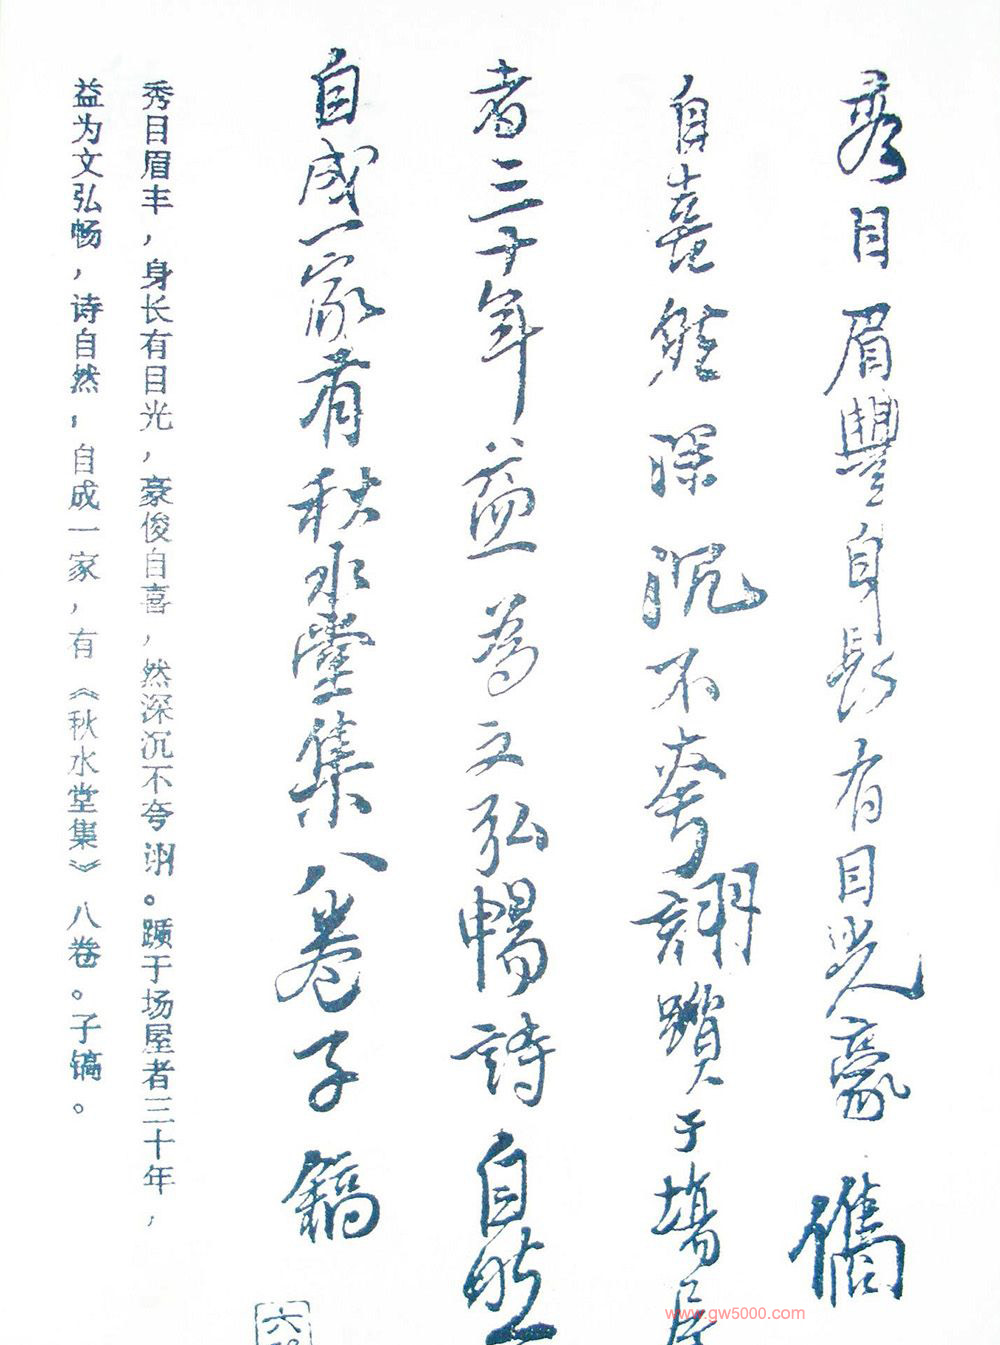 秀目眉豐身長有目光豪儁
自喜然深沉不夸詡躓于場屋
者三十年益為文弘暢詩自然
自成一家有秋水堂集八卷子鎬
秀目眉丰，身长有目光，豪俊自喜，然深沉不夸诩。踬于场屋者三十年，
益为文弘畅，诗自然，自成一家，有《秋水堂集》八卷。子镐。
六
www.gw5000.com